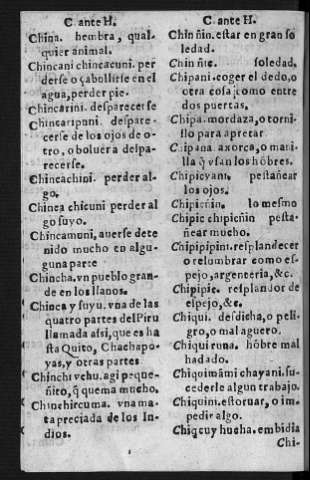 C ante H.
China. hembra, qual-
quier animal.
Chincani chincacuni. per
derse o çabollirse en el
agua, perder pie.
Chincarini. desparecerse
Chincaripuni. despare-
cerse de los ojos de o-
tro, o boluer a despa-
recerse.
Chincachini. perder al-
go.
Chinca chicuni perder al
go suyo.
Chincamuni, auerse dete
nido mucho en algu-
guna parte
Chincha. vn pueblo gran-
de en los llanos.
Chinca y suyu. vna de las
quatro partes del Piru
llamada assi, que es ha
sta Quito, Chachapo-
yas, y otras partes
Chinchi vchu. agi peque-
ñito, q̃ quema mucho.
Chinchircuma. vna ma-
ta preciada de los In-
dios.
C ante H.
Chin ñin. estar en gran so
ledad.
Chin ñic. soledad.
Chipani. coger el dedo, o
otra cosa como entre
dos puertas.
Chipa. mordaza, o torni-
llo para apretar
Chipana axorca, o mani-
lla q̃ vsan los hõbres.
Chipicyani. pestañear
los ojos.
Chipicñin. lo mesmo
Chipic chipicñin pesta-
ñear mucho.
Chipipipini. resplandecer
o relumbrar como es-
pejo, argenteria, &c.
Chipipic. resplandor de
espejo, &c.
Chiqui. desdicha, o peli-
gro, o mal aguero.
Chiqui runa. hõbre mal
hadado.
Chiquimãmi chayani. su-
cederle algun trabajo.
Chiquini. estoruar, o im-
pedir algo.
Chiqcuy hucha. embidia
Chi-